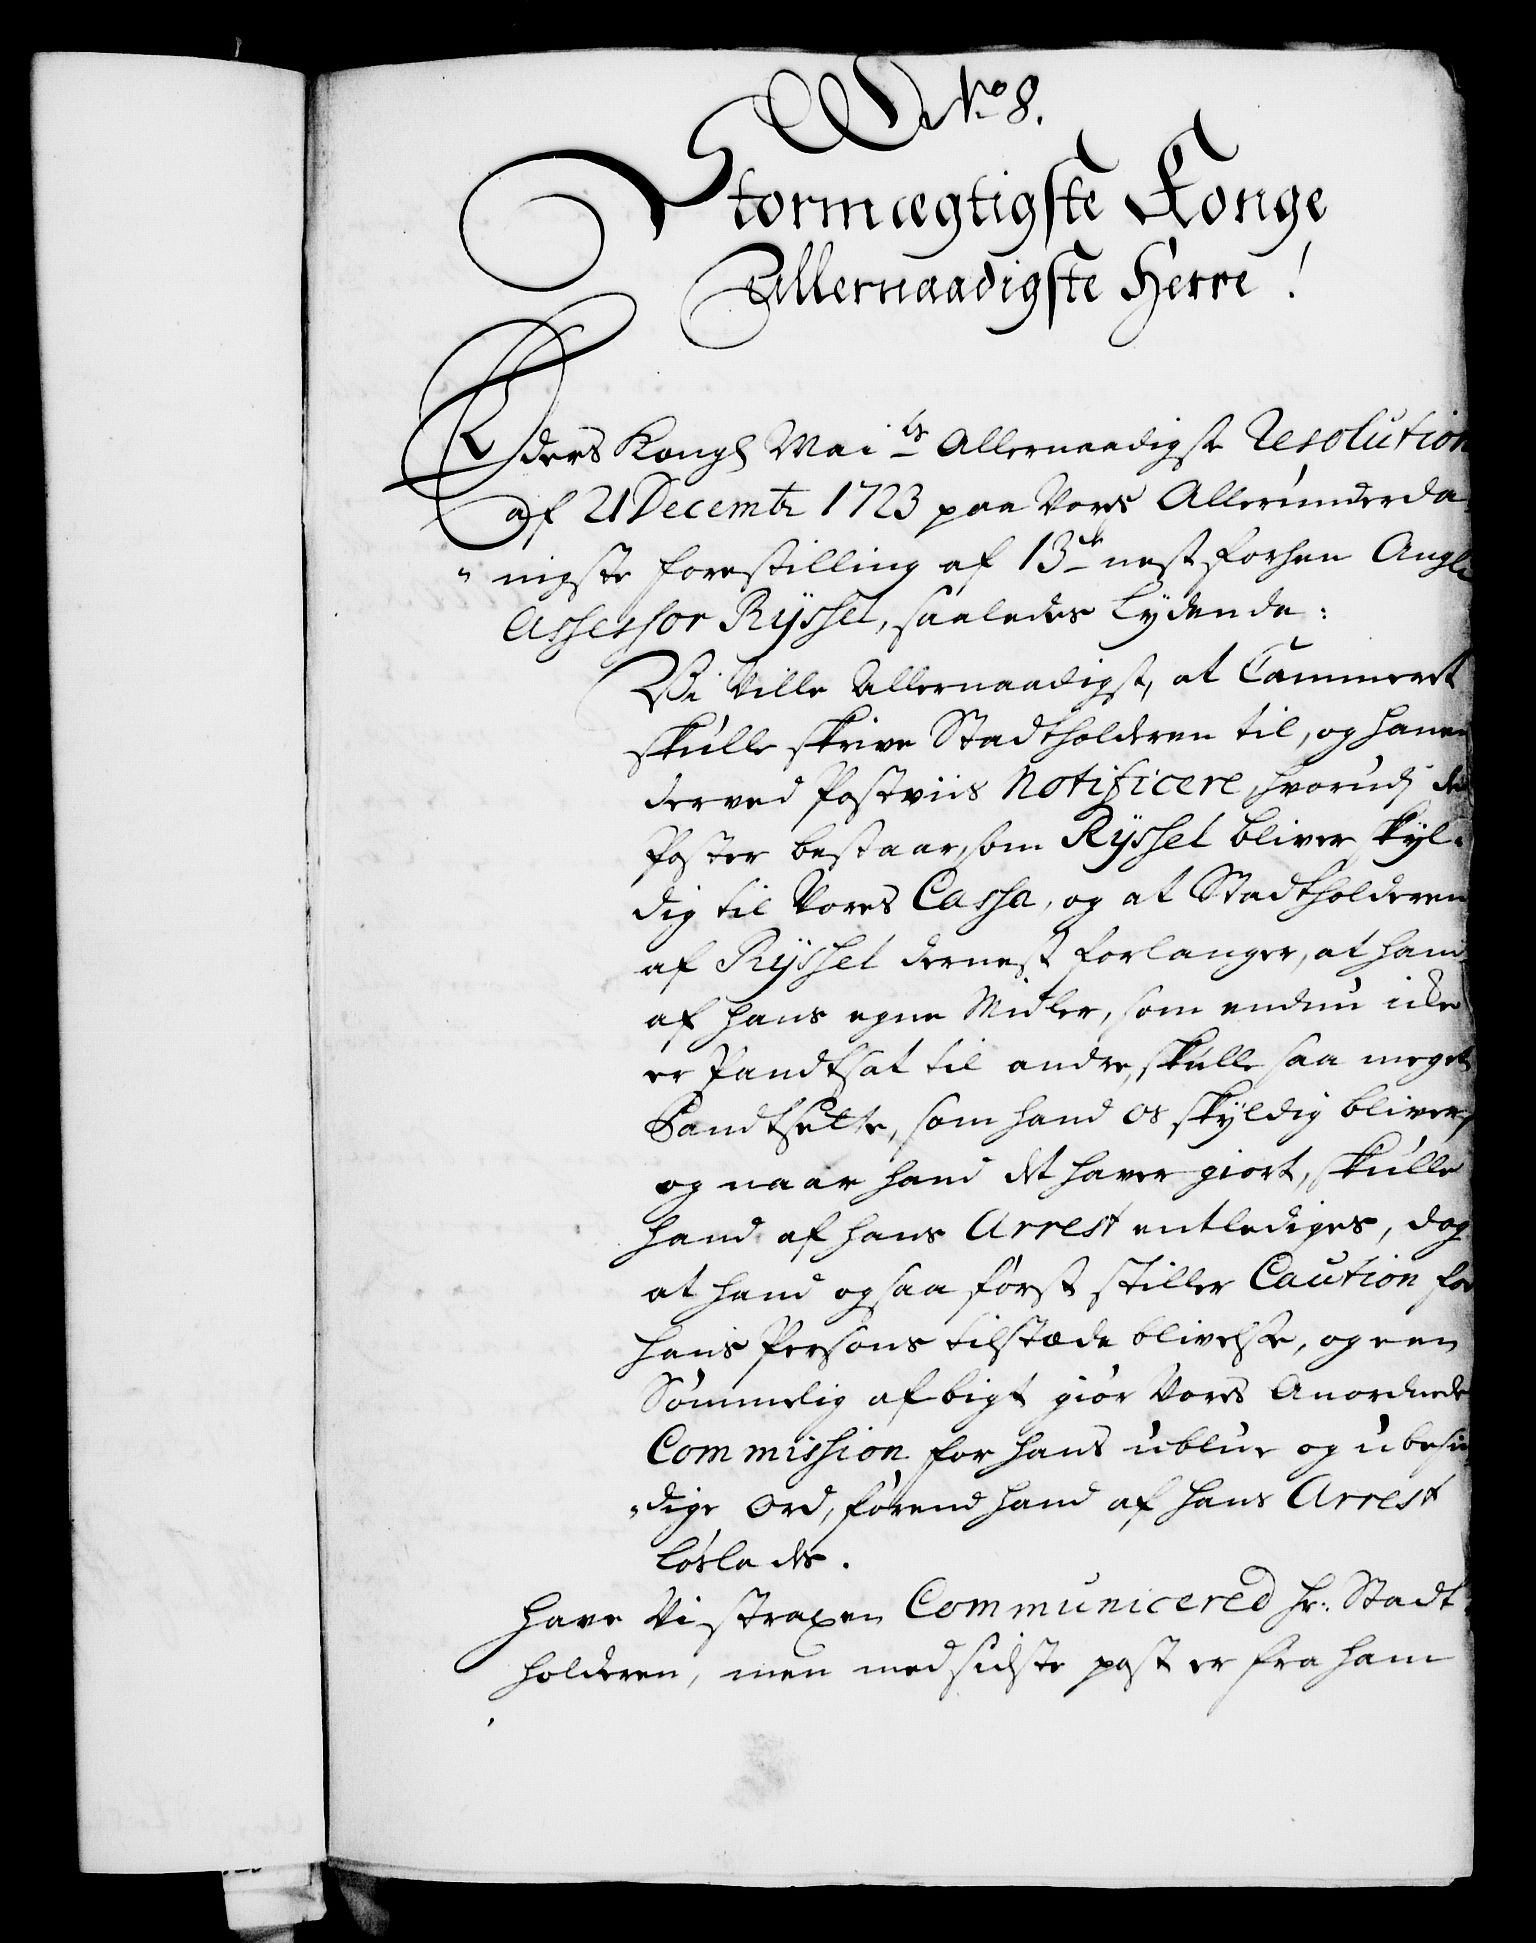 No 8.
Stormægtigste Konge
Allernaadigste Herre!
Eders Kongl Mai ts Allernaadigste Resolution
af 21 Decembr 1723 paa Vores Allerunderda
„ nigste forestilling af 13de nestforhen Angl
Assessor Rÿssel, saaledes lÿdende:
Vi Ville Allernaadigst, at Cammeret
skulle skrive Stadtholderen til, og hanem
derved Postviis Notificere, hvorudj de
Poster bestaar, som Rÿssel bliver skÿl-
dig til Vores Cassa, og at Stadtholderen
af Rÿssel dernest forlanger, at hand
af hans egne Midler, som endnu icke
er Pandtsat til andre, skulle saa meget
Pandtsette, som hand os skÿldig bliver,
og naar hand det haver giort, skulle
hand af hans Arrest entlediges, dog
at hand ogsaa først stiller Caution for
hans Persons tilstæde blivelse, og een
Sømmelig afbigt giør Vores Anordnede
Commission for hans ublue og ubesin
„dige Ord, førend hand af hans Arrest
løslades.
Have Vi straxen Communicered Hr: Stadt
holderen, men med sidste post er fra ham